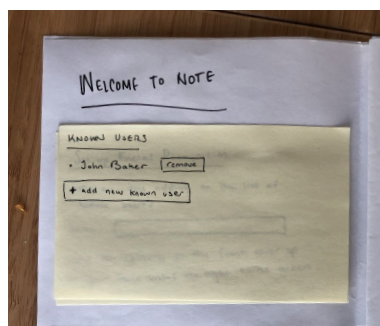 WELCOME TO NOTE
KNOWN USERS
• John Baker remove
+ add new known user